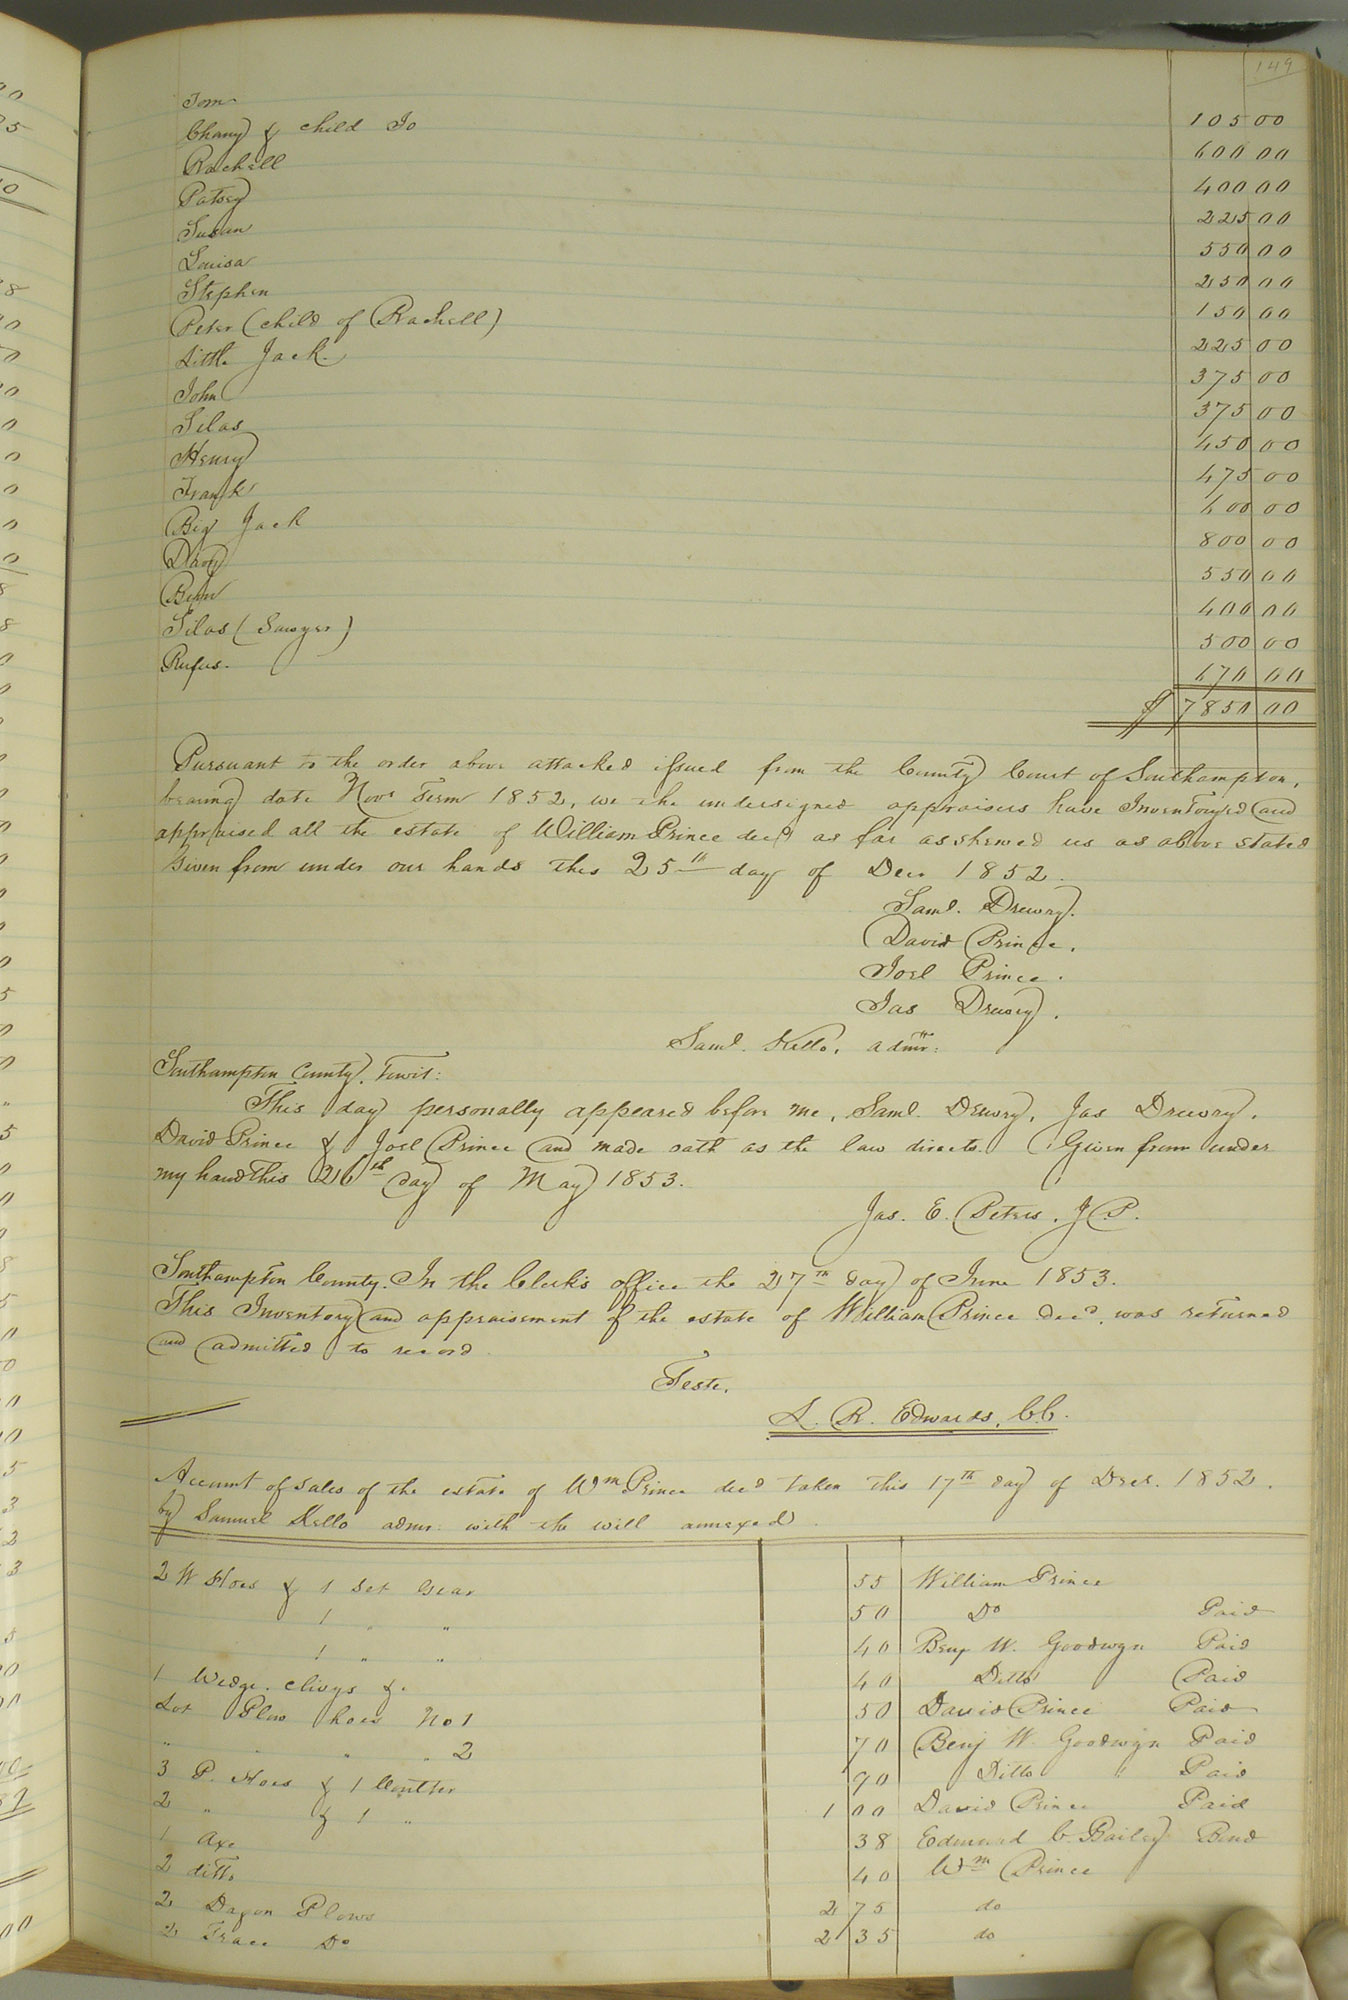 149
Tom 105 00
Chany & child Jo 600 00
Rachell 400 00
Patsey 225 00
Susan 550 00
Louisa 250 00
Stephen 150 00
Peter (child of Rachell) 225 00
Little Jack 375 00
John 375 00
Silas 450 00
Henry 475 00
Frank 600 00
Big Jack 800 00
Davy 550 00
Ben 400 00
Silas (Sawyer) 500 00
Rufus. 670 00
$ 7850 00
Pursuant to the order above attached issued from the County Court of Southampton,
bearing date Novr Term 1852, we the undersigned appraisers have Inventoryed and
appraised all the estate of William Prince decd as far as shewed us as above stated
Given from under our hands this 25th day of Decr 1852.
Saml. Drewry.
David Prince.
Joel Prince.
Jas Drewry.
Saml. Kello, admr:
Southampton County, Towit:
This day personally appeared before me, Saml. Drewry, Jas Drewry,
David Prince & Joel Prince and made oath as the law directs. Given from under
my hand this 26th day of May 1853.
Jas. E. Peters. J.P.
Southampton County. In the Clerk's office the 27th day of June 1853.
This Inventory and appraisement of the estate of William Prince decd, was returned
and admitted to record.
Teste,
L. R. Edwards, C.C.
Account of sales of the estate of Wm Prince decd taken this 17th day of Decr. 1852.
by Samuel Kello admr. with the will annexed.
2 W Hoes & 1 Set Gear 55 William Prince
1 " " 50 Do Paid
1 " " 40 Benj W. Goodwyn Paid
1 Wedge. Clivys &c 40 Ditto Paid
Lot Plow hoes No 1 50 David Prince Paid
" " " " 2 70 Benj W. Goodwyn Paid
3 P. Hoes & 1 Coulter 90 Ditto Paid
2 " & 1 " 1 00 David Prince Paid
1 Axe 38 Edmund C. Bailey Bond
2 ditto 40 Wm Prince
2 Dagon Plows 2 75 do
2 Trace Do 2 35 do